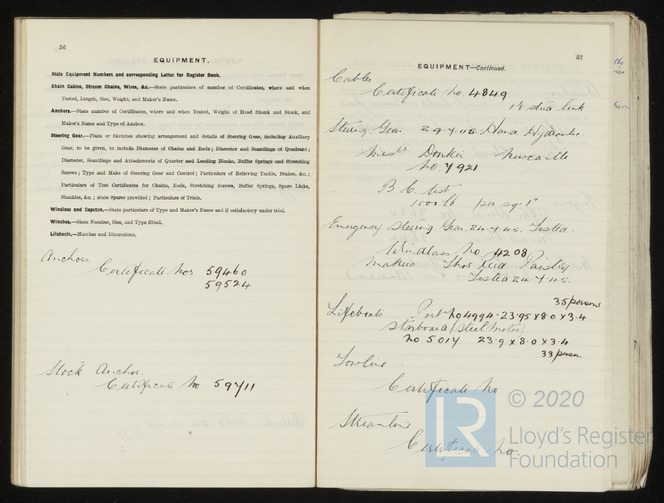 56
EQUIPMENT.
State Equipment Numbers and corresponding Letter for Register Book.
Chain Cables, Stream Chains, Wires, &c.—State particulars of number of Certificates, where and when
Tested, Length, Size, Weight, and Maker's Name.
Anchors.—State number of Certificates, where and when Tested, Weight of Head Shank and Stock, and
Maker's Name and Type of Anchor.
Steering Gear.—Plans or Sketches showing arrangement and details of Steering Gear, including Auxiliary
Gear, to be given, to include Diameter of Chains and Rods; Diameter and Scantlings of Quadrant;
Diameter, Scantlings and Attachments of Quarter and Leading Blocks, Buffer Springs and Stretching
Screws; Type and Make of Steering Gear and Control; Particulars of Relieving Tackle, Brakes, &c.;
Particulars of Test Certificates for Chains, Rods, Stretching Screws, Buffer Springs, Spare Links,
Shackles, &c.; state Spares provided; Particulars of Trials.
Windlass and Capstan.—State particulars of Type and Maker's Name and if satisfactory under trial.
Winches.—State Number, Size, and Type fitted.
Lifeboats.—Number and Dimensions.
Anchors
Certificate Nos 59460
59524
Stock Anchor.
Certificate No 59711
57
EQUIPMENT—Continued.
Cables
Certificate No. 4849
stud link
Steering Gear. 29.7.45. Hand Hydraulic.
Donkin Newcastle
No. 7921
B C test
1000 lb per sq. 1"
Emergency Steering Gear. 24.7.45. Tested.
Windlass No 4208
Makers Thos Reid Paisley
Tested 24.7.45.
35 persons
Lifeboats Port No 4994. 23.95 x 8.0 x 3.4
Starboard (Steel Motor)
No 5017 23.9 x 8.0 x 3.4
33 person.
Towline
Certificate No
Streamline
Certificate No.
© 2020
LR
Lloyd's Register
Foundation